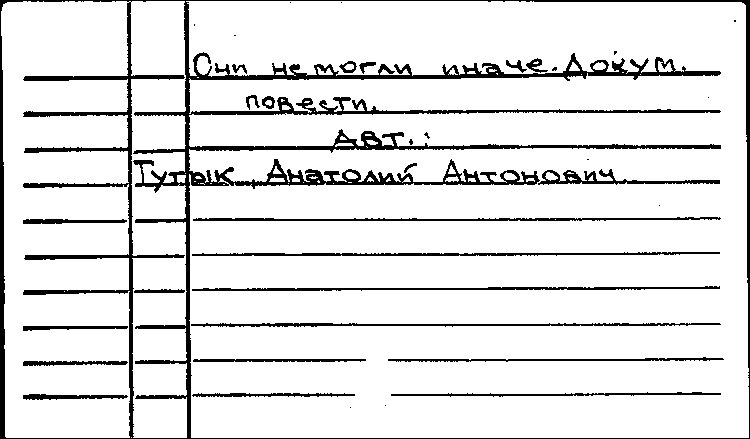 Они не могли иначе. Докум.
повести.
Авт.:
Тутык, Анатолий Антонович